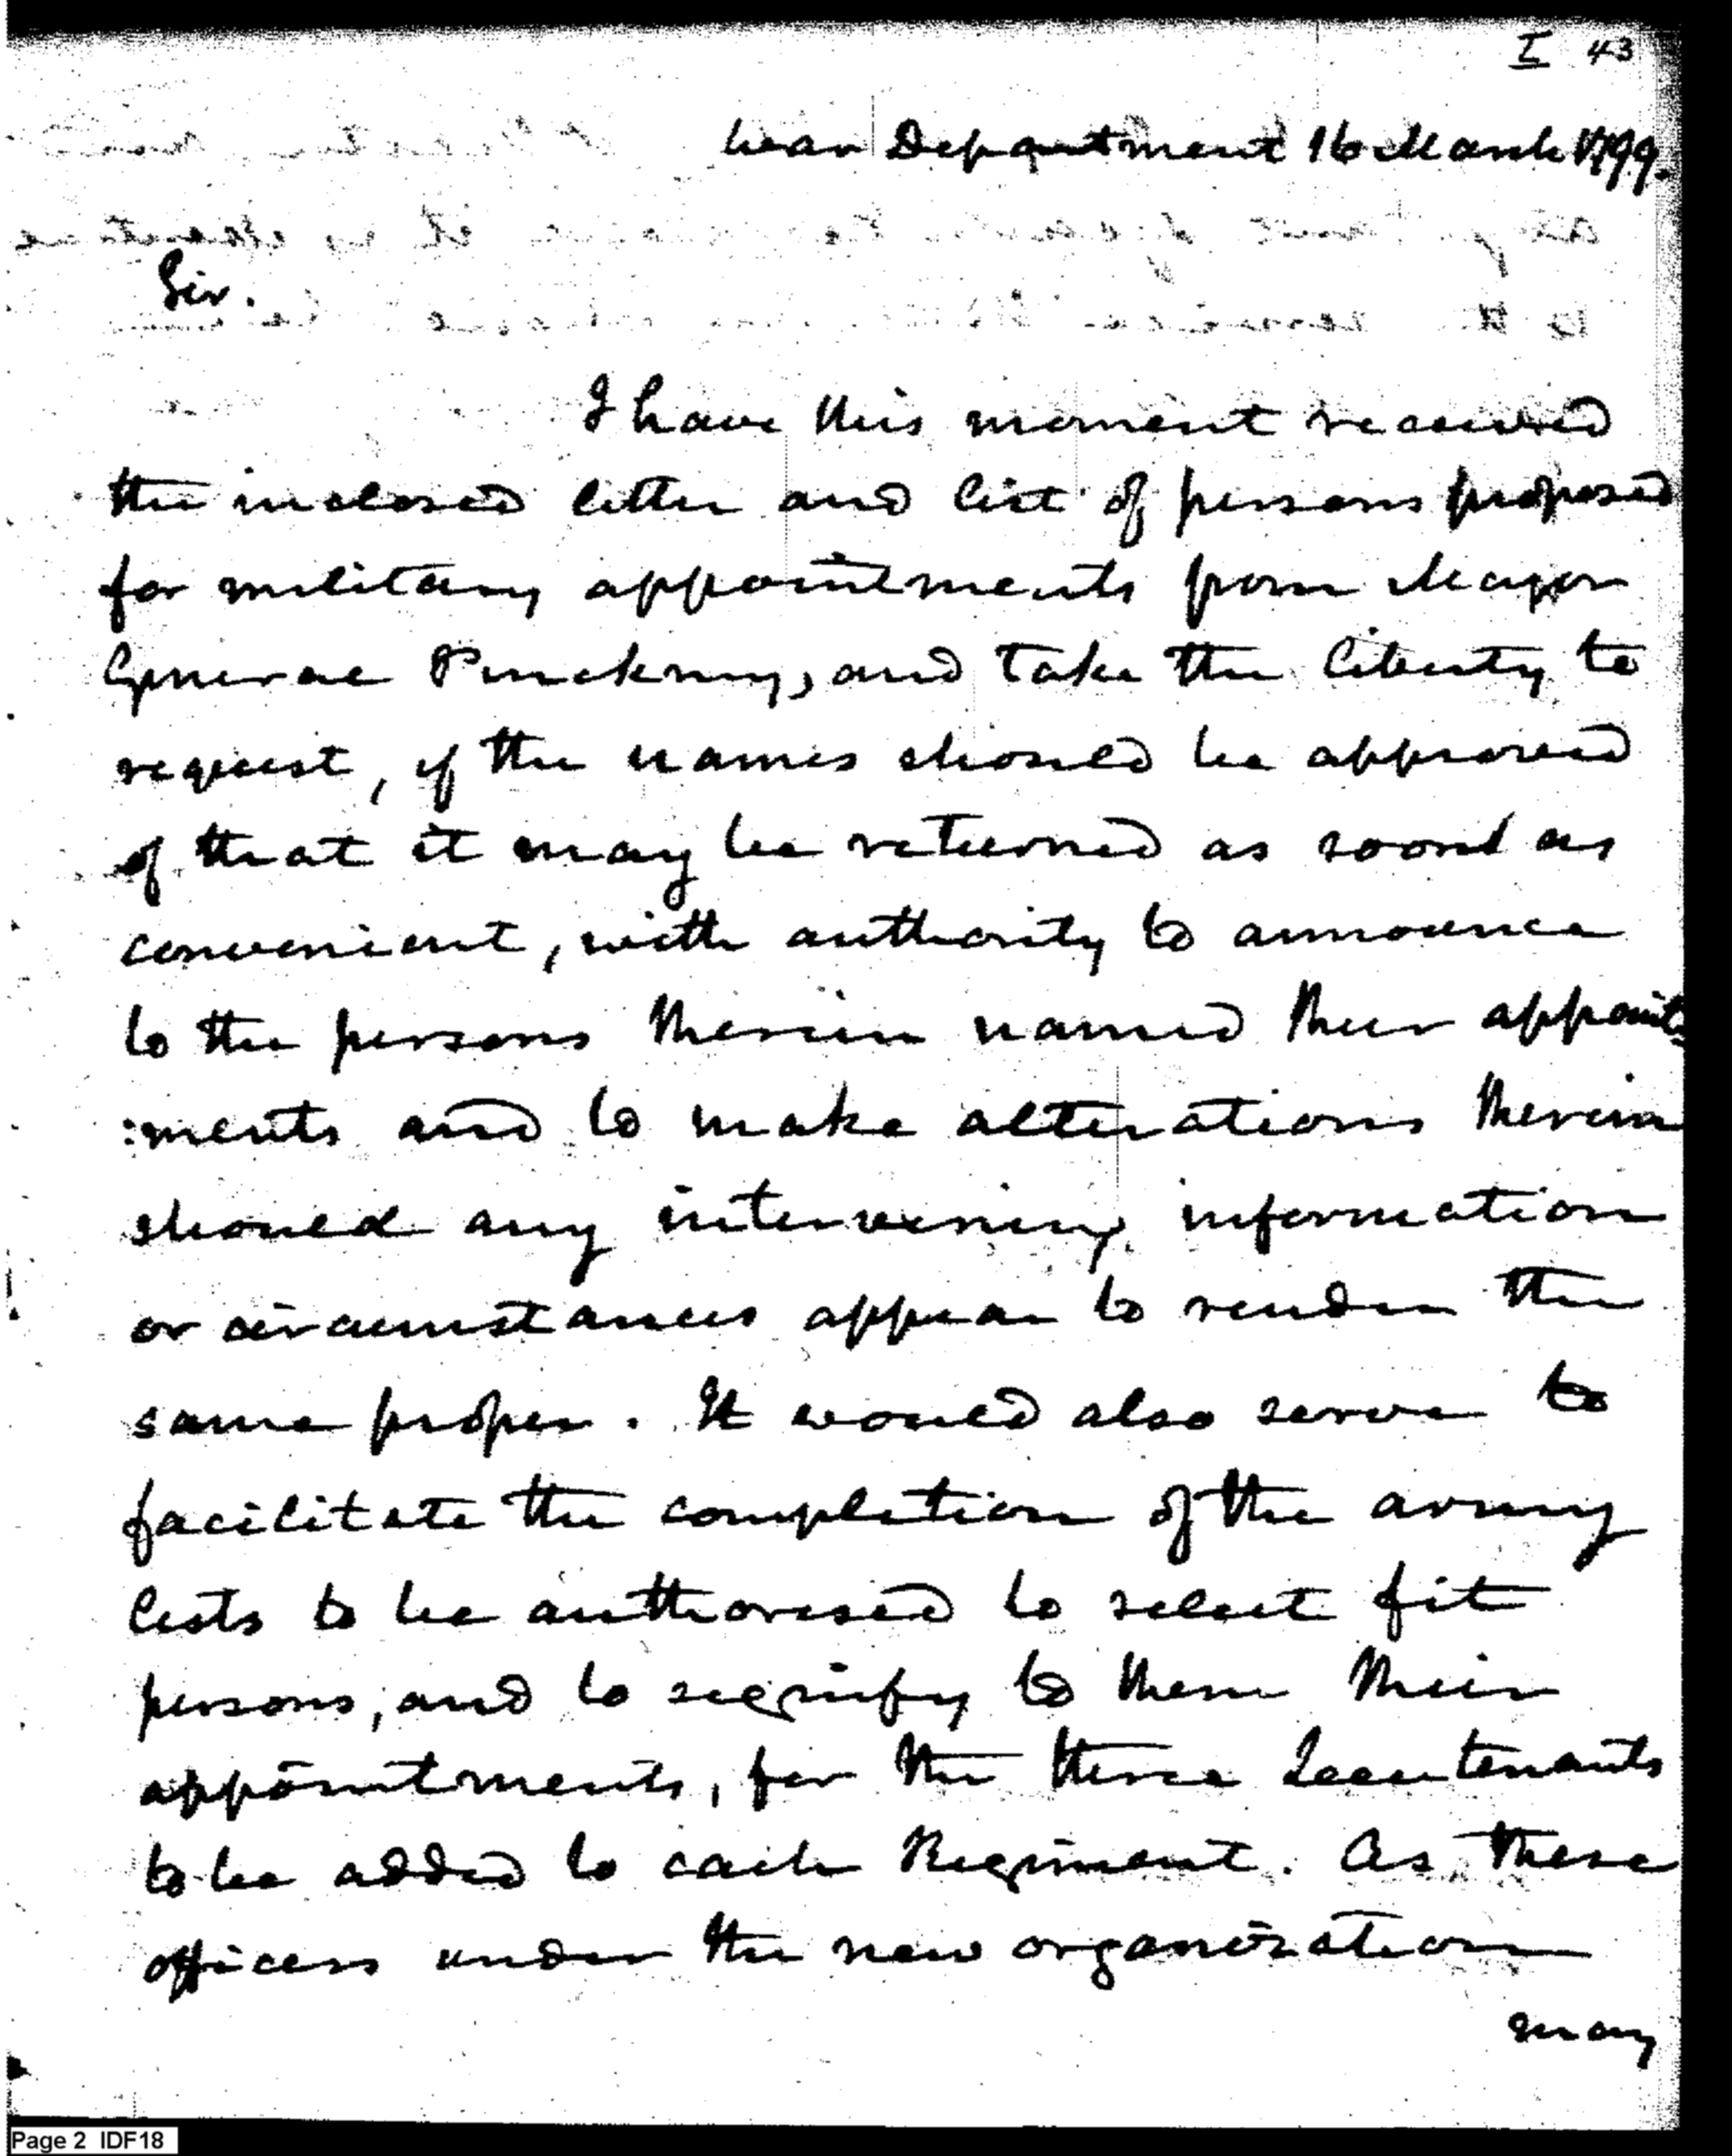 I 43
War Department 16 March 1799.
Sir.
I have this moment received
the inclosed letter and list of persons proposed
for military appointments from Major
General Pinckney, and take the liberty to
request, if the names should be approved
of that it may be returned as soon as
convenient, with authority to announce
to the persons therein named their appoint
:ments and to make alterations therein
should any intervening information
or circumstances appear to render the
same proper. It would also serve to
facilitate the completion of the army
lists to be authorised to select fit
persons, and to signify to them their
appointments, for the three Lieutenants
to be added to each Regiment. As these
officers under the new organization
may
Page 2 IDF18